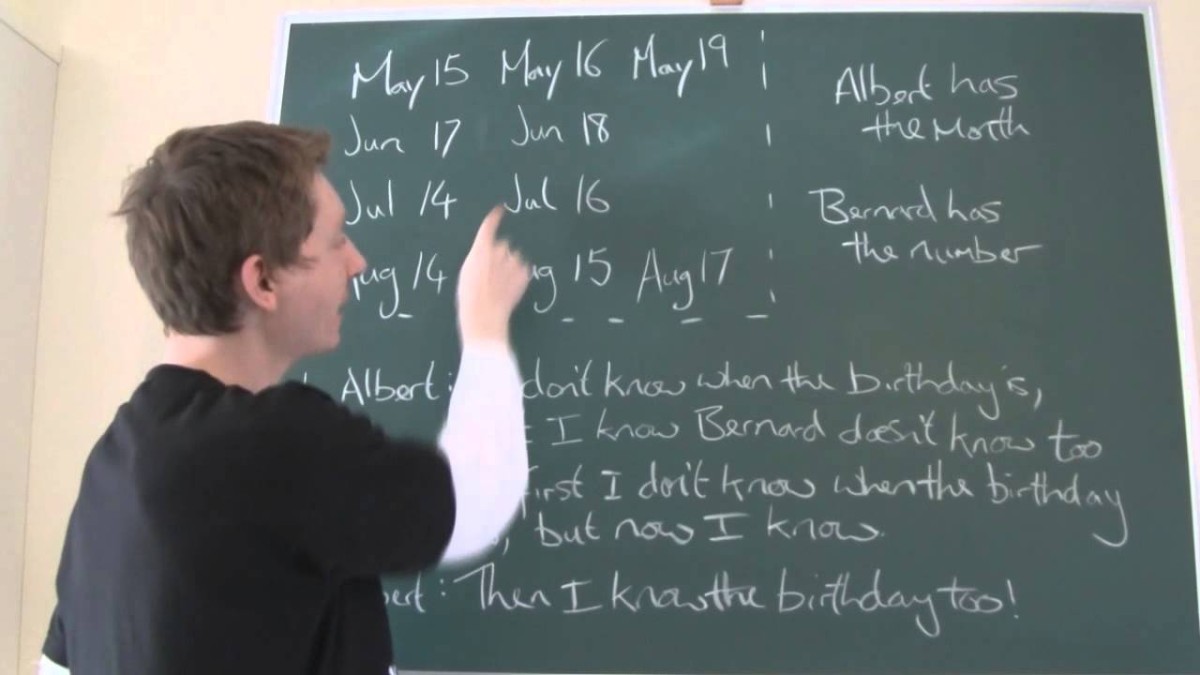 May 15 May 16 May 19
Jun 17 Jun 18
Jul 14 Jul 16
14 15 Aug 17
Albert has
the Month
Bernard has
the number
Albert: don't know when the birthday is,
I know Bernard doesn't know too
first I don't know when the birthday
, but now I know.
: Then I know the birthday too!